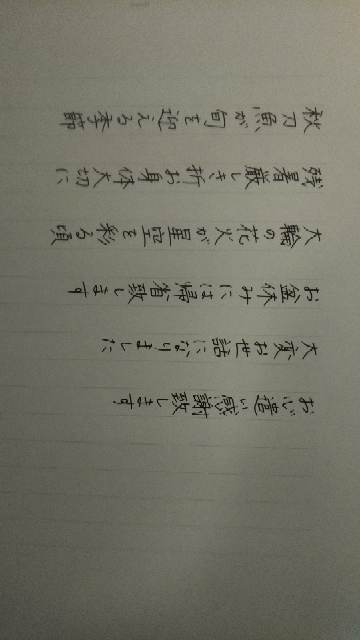 秋刀魚が旬を迎える季節
残暑厳しき折お身体大切に
大輪の花火が星空を彩る頃
お盆休みには帰省致します
大変お世話になりました
お心遣い感謝致します